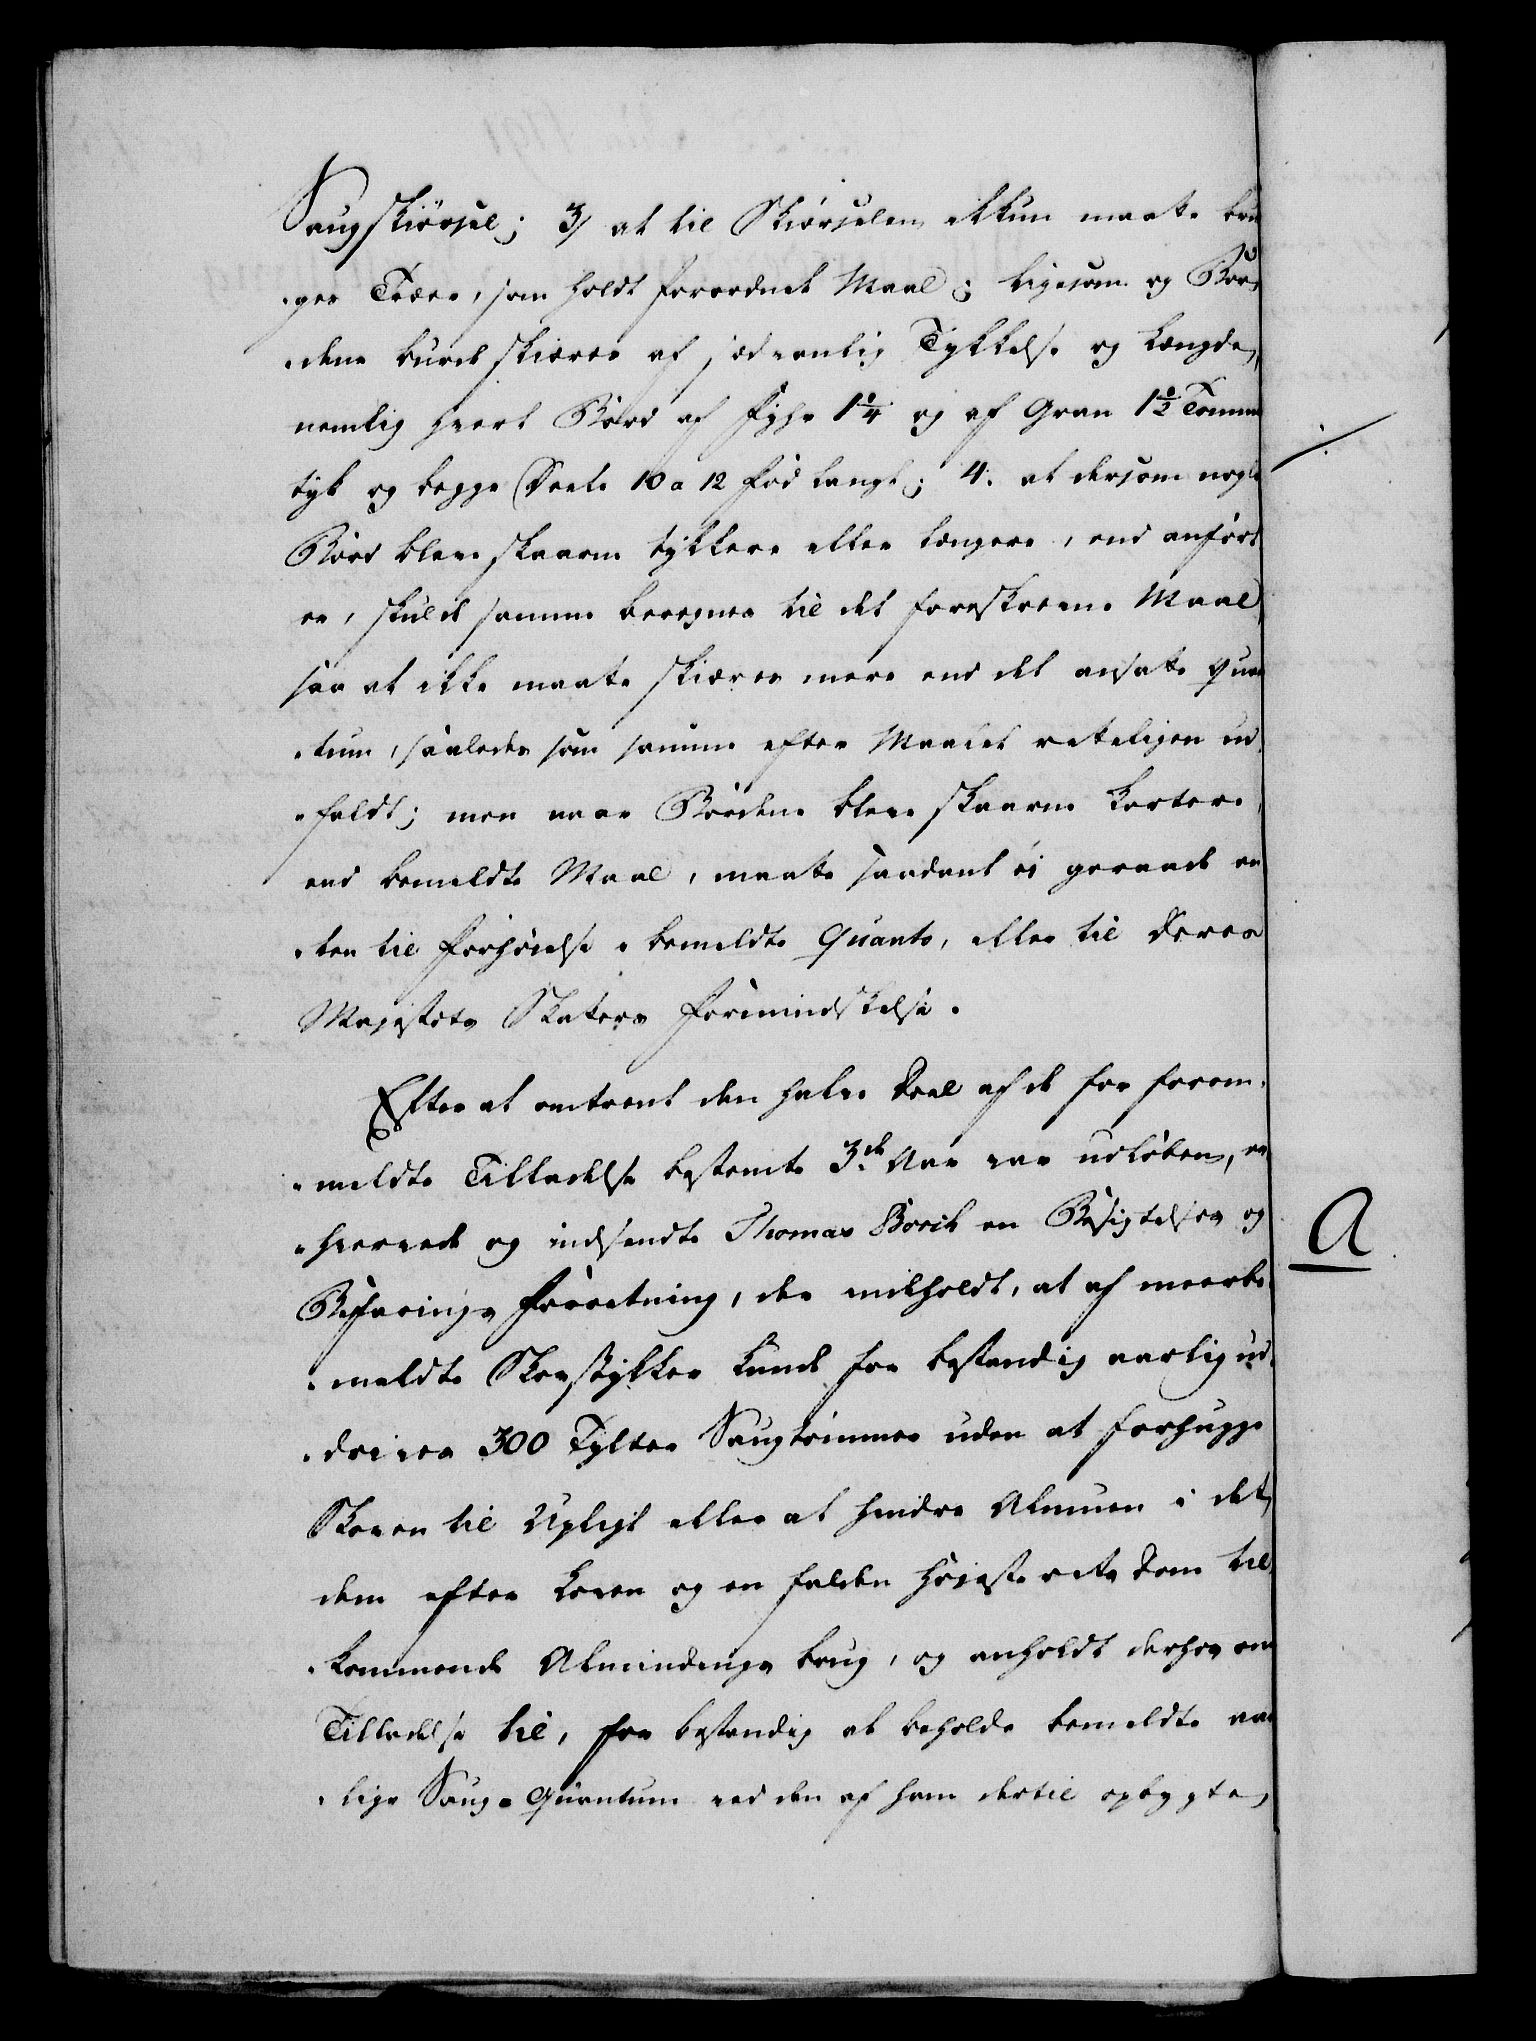 Saugskiørsel; 3/ at til Skiørselen ikkun maate bru
-ges Træer, som holdt forordnet Maal; ligesom og Bor-
-dene burde skiæres af sædvanlig Tykkelse og Længde,
nemlig hvert Bord af Fyhr 1¼ og af Gran 1½ Tomme
tyk og begge Sorte 10 a 12 Fod langt; 4. at dersom nogle
Bord bleve skaarne tykkere eller længere, end anført
er, skulde samme beregnes til det foreskrevne Maal,
saa at ikke maate skiæres mere end det ansatte Quan
-tum, saaledes som samme efter Maalet retteligen ud
-faldt; men naar Bordene bleve skaarne kortere,
end bemeldte Maal, maate saadant ei geraade en
-ten til Forhøielse i bemeldte Quanto, eller til Deres
Majestets Skatters Formindskelse.
Efter at omtrent den halve Deel af de for forom-
-meldte Tilladelse bestemte 3de Aar var udløben, er-
-hvervede og indsendte Thomas Borch en Besigtelses og
Befarings Forretning, der indholdt, at af meerbe-
-meldte Skovstykker kunde for bestandig aarlig ud-
-drives 300 Tylter Saugtømmer uden at forhugge
Skoven til Upligt eller at hindre Almuen i det,
dem efter Loven og en falden Højeste rets Dom til
-kommende Almindings brug, og anholdt derhos om
Tilladelse til, for bestandig at beholde bemeldte aar
-lige Saug-Quantum ved den af ham dertil opbygte,
A